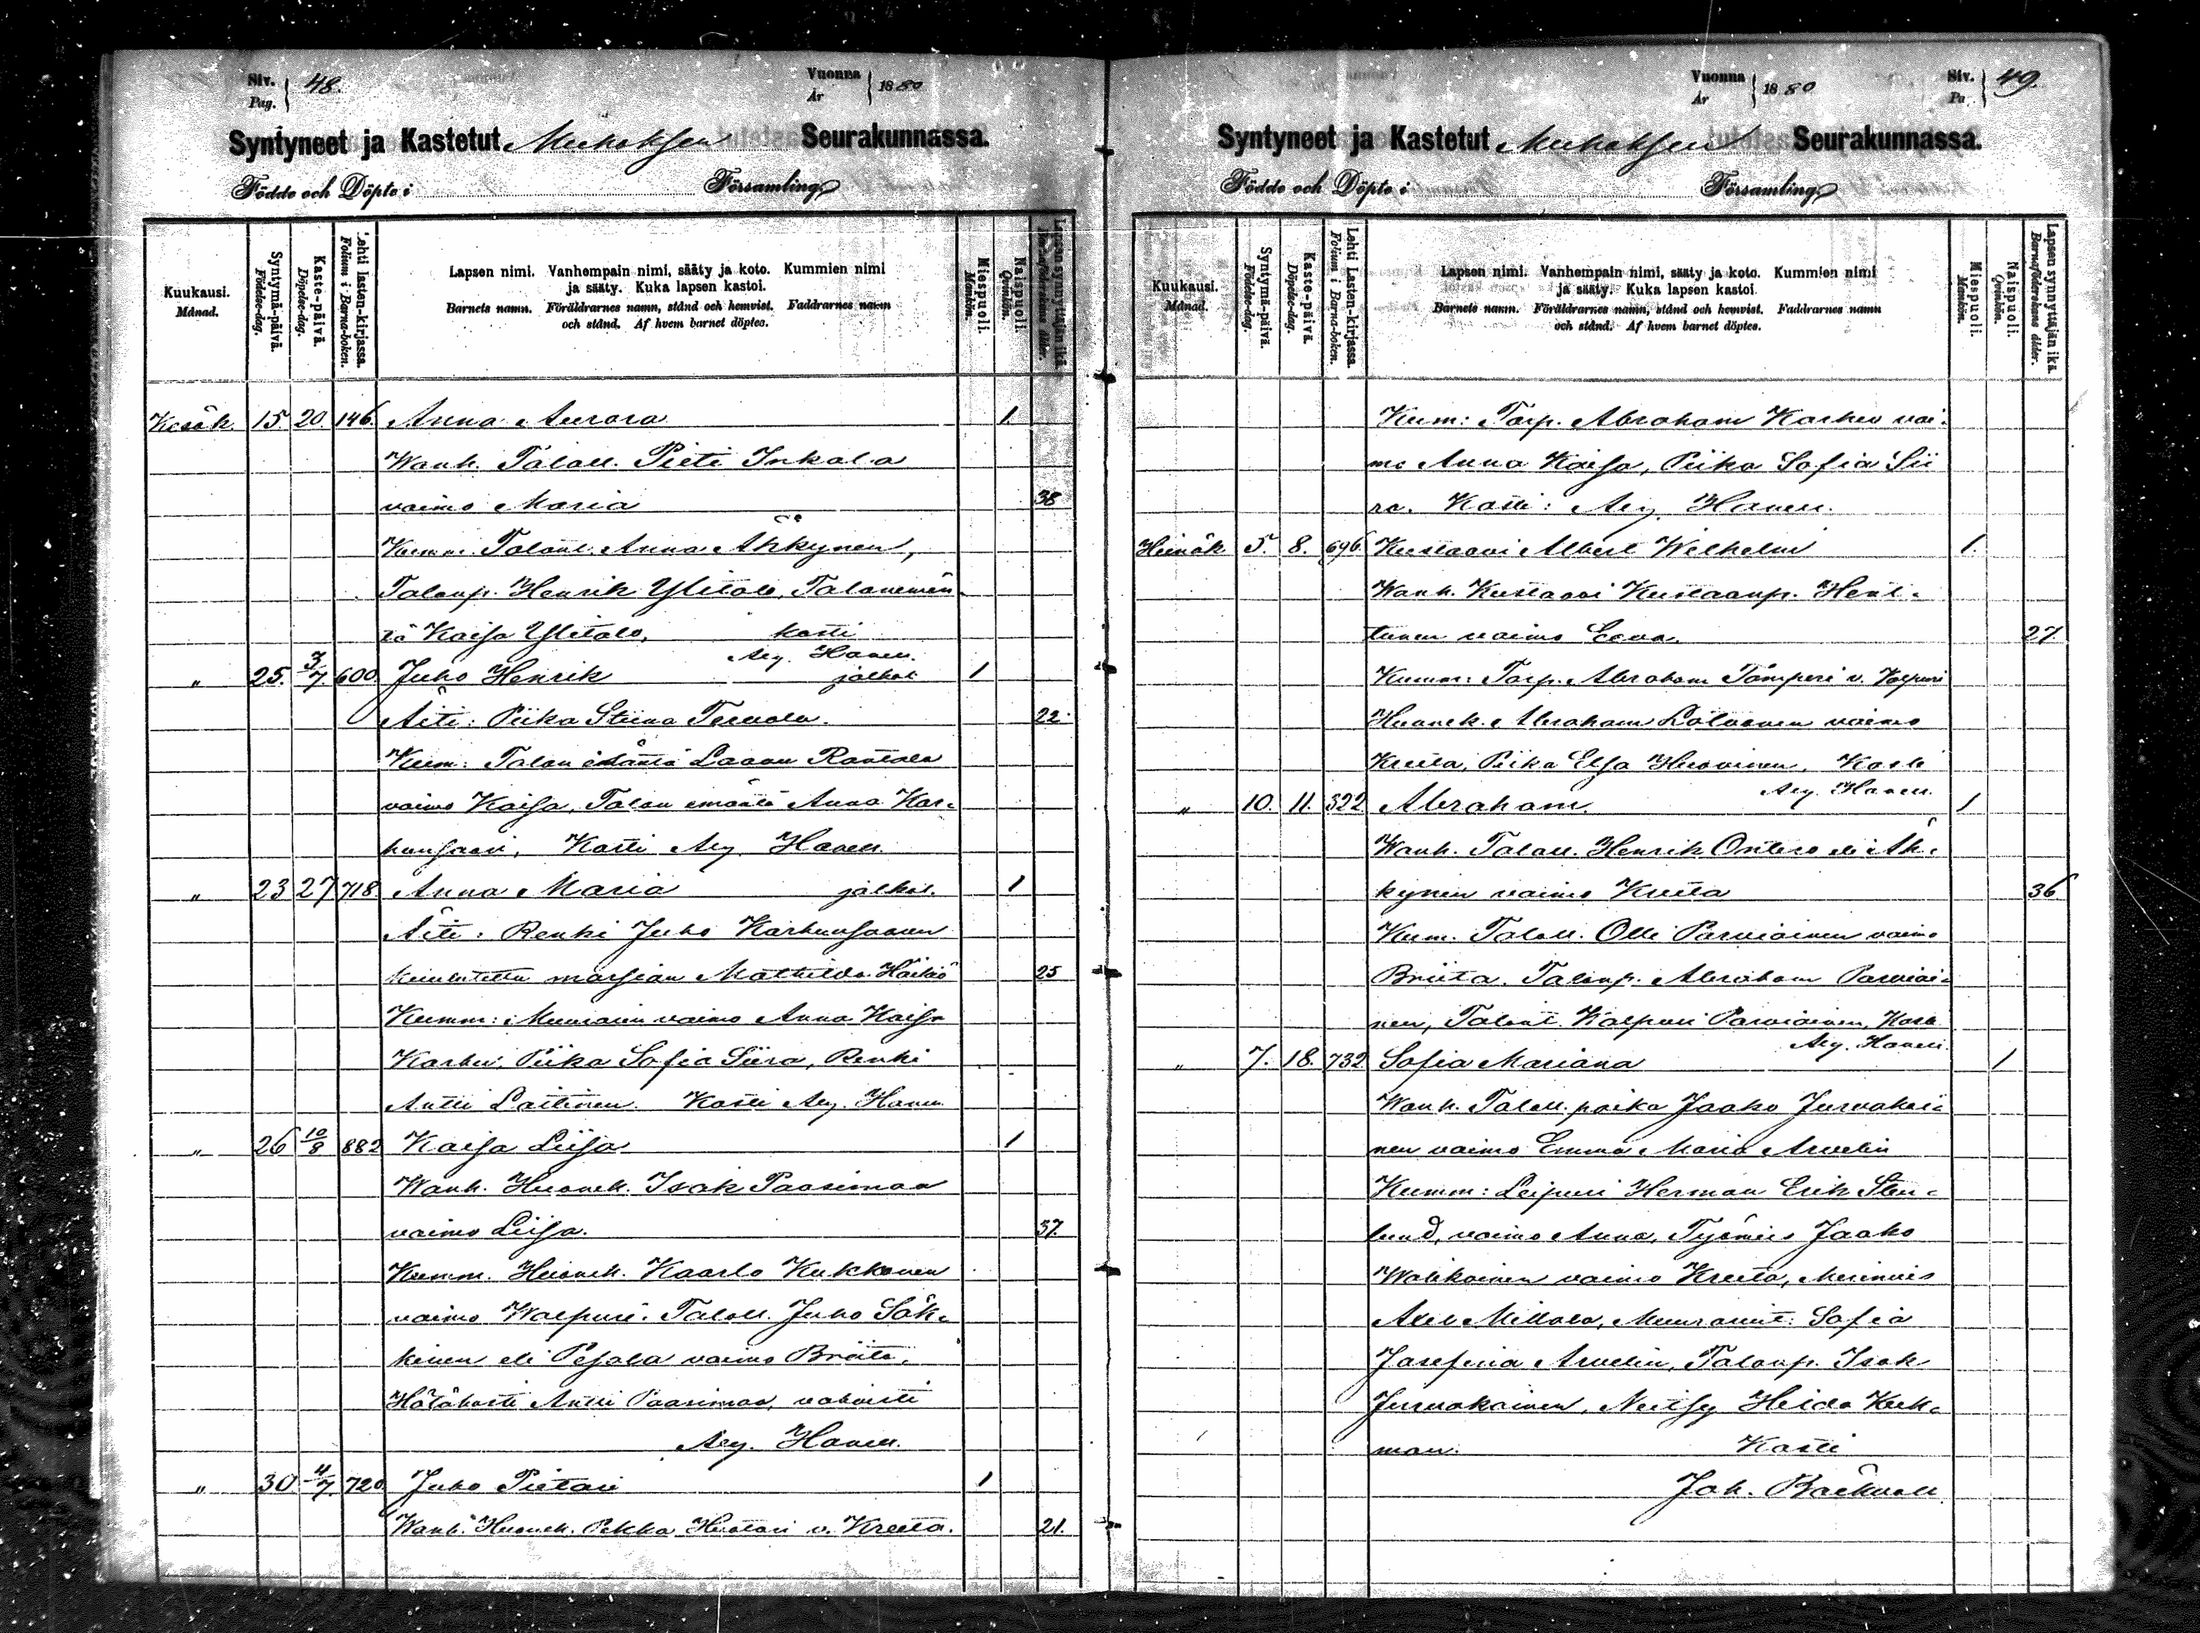 Siv. Pag. 48.
Vuonna År 1880
Syntyneet ja Kastetut Muhoksen Seurakunnassa.
Födde och Döpte i Församling,
Kuukausi. Månad.
Syntymä-päivä. Födelse-dag.
Kaste-päivä. Döpelse-dag.
Lehti lasten-kirjassa. Folium i Barna-boken.
Lapsen nimi. Vanhempain nimi, sääty ja koto. Kummien nimi
ja sääty. Kuka lapsen kastoi.
Barnets namn. Föräldrarnes namn, stånd och hemvist. Faddrarnes namn
och stånd. Af hvem barnet döptes.
Miespuoli. Mankön.
Naispuoli. Qvinkön.
Lapsen synnyttäjän ikä. Barnaföderskans ålder.
Kesäk. 15. 20. 146. Anna Aurora 1.
Wanh. Talall. Pieti Inkala
vaimo Maria 38
Kumm. Talont. Anna Ahkynen,
Talonp. Henrik Ylitalo, Talonemän
tä Kaisa Ylitalo, kasti
Arm. Haven.
" 25. 3/7. 600. Juho Henrik jälkel. 1
Äiti: Piika Stiina Tervola. 22.
Kum: Talon isäntä Laaon Rantala
vaimo Kaisa, Talon emäntä Anna Kar-
hunsaari, Kasti Haven.
" 23 27 718. Anna Maria jälkel. 1
Äiti: Renki Juho Karhunsaaren
kuulutettu morsian Mathilda Häikiö 25
Kumm: Muurarin vaimo Anna Kaisa
Karhu, Piika Sofia Siira, Renki
Antti Laitinen. Kasti Haven
" 26 10/8 882 Kaisa Liisa 1
Wanh. Huoneh. Isak Paasimaa
vaimo Liisa. 37.
Kumm. Huoneh. Kaarlo Kukkonen
vaimo Walpuri. Talall. Juho Säk-
kinen eli Pesola vaimo Briita.
Hätäkasti Antti Paasimaa, vahvisti
Haven.
" 30 11/7. 720. Juho Pietari 1
Wanh. Huoneh. Pekka Huotari v. Kreeta. 21.
Vuonna År 1880
Siv. Pa. 49.
Syntyneet ja Kastetut Muhoksen Seurakunnassa.
Födde och Döpte i Församling,
Kuukausi. Månad.
Syntymä-päivä. Födelse-dag.
Kaste-päivä. Döpelse-dag.
Lehti Lasten-kirjassa. Folium i Barna-boken.
Lapsen nimi. Vanhempain nimi, sääty ja koto. Kummien nimi
ja sääty. Kuka lapsen kastoi.
Barnets namn. Föräldrarnes namn, stånd och hemvist. Faddrarnes namn
och stånd. Af hvem barnet döptes.
Miespuoli. Mankön.
Naispuoli. Qvinkön.
Lapsen synnyttäjän ikä. Barnaföderskans ålder.
Kum: Torp. Abraham Karhu vai-
mo Anna Kaisa, Piika Sofia Sii
ra. Kasti: Haven.
Heinäk 5. 8. 696 Kustaavi Albert Wilhelm 1.
Wanh. Kustaavi Kustaanp. Hent-
tunen vaimo Eeva. 27
Kumm: Torp. Abraham Tämperi v. Valpuri
Huonek. Abraham Lotvonen vaimo
Kreeta, Piika Elsa Huovinen, Kasti
Haven.
" 10. 11. 322 Abraham. 1
Wanh. Talall. Henrik Ontero eli Äh-
kynen vaimo Kreeta 36
Kum. Talall. Olli Parviainen vaimo
Briita. Talonp. Abraham Parviai-
nen, Talont. Walpuri Parviainen, Kasti
Haven.
" 7. 18. 732 Sofia Mariana 1
Wanh. Talall. poika Jaako Jurvakai-
nen vaimo Emma Maria Arvelin
Kumm: Leipuri Herman Erik Sten-
lund, vaimo Anna, Työmies Jaako
Wälikoinen vaimo Kreeta, Merimies
Axel Millola, Muurarint. Sofia
Josefina Arvelin, Talonp. Isak
Jurvakainen, Neitsy Heida Kuk-
man. Kasti
Joh. Bäckvall.